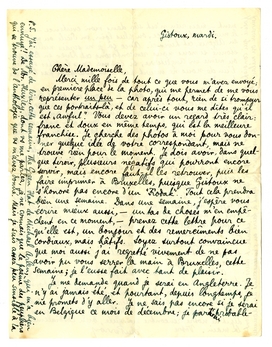 Gistoux, mardi.
Chère Mademoiselle,
Merci mille fois de tout ce que vous m'avez envoyé,
en première place de la photo, qui me permet de me vous
représenter un peu — car après tout, rien de si trompeur
que ces portraits-là, et de celui-ci vous me dites qu'il
est "awful". Vous devez avoir un regard très clair:
franc et doux en même temps, qui est la meilleure
franchise. Je cherche des photos à moi pour vous don-
ner quelque idée de votre correspondant, mais ne
trouve rien pour le moment. Je dois avoir, dans quel-
que tiroir, plusieurs négatifs qui pourront encore
servir, mais encore faut-il les retrouver, puis les
faire imprimer à Bruxelles, puisque Gistoux ne
s'honore pas encore d'un "Kodak". Tout cela prendra
bien une semaine. Dans une semaine, j'espère vous
écrire mieux aussi, — un tas de choses m'en empê-
chent en ce moment, — prenez cette lettre pour ce
qu'elle est, un bonjour et des remerciements bien
cordiaux, mais hâtifs. Soyez surtout convaincue
que moi aussi j'ai regretté vivement de ne pas
avoir pu vous serrer la main à Bruxelles, cette
semaine; je l'eusse fait avec tant de plaisir.
Je me demande quand je serai en Angleterre. Je
n'y ai jamais été, et pourtant, depuis longtemps, je
me promets d'y aller. Je ne sais pas encore si je serai en
Belgique ce mois de décembre; je partirai probable-